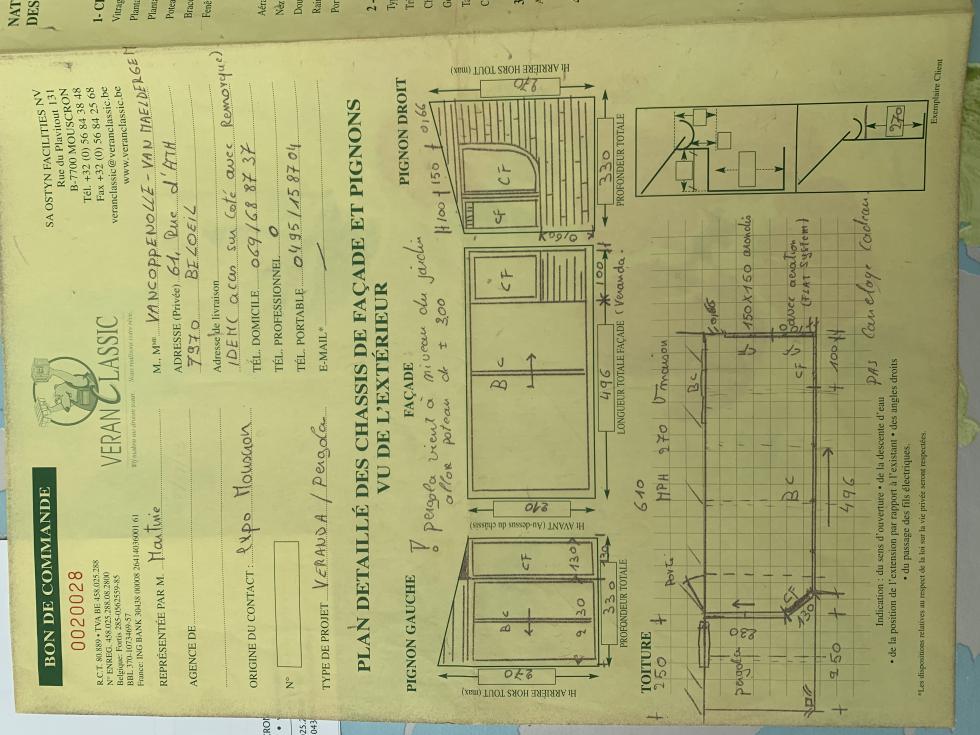 BON DE COMMANDE
0020028
R.C.T. 80.889 • TVA BE 458.025.288
N° ENREG. 458.025.288.08.2800
Belgique: Fortis 285-0562559-85
BBL 370-1073469-57
France: ING BANK 30438 00008 26414036001 61
VERAN CLASSIC
SA OSTYN FACILITIES NV
Rue du Plavitout 131
B-7700 MOUSCRON
Tél. +32 (0) 56 84 38 48
Fax +32 (0) 56 84 25 68
veranclassic@veranclassic.be
www.veranclassic.be
REPRÉSENTÉE PAR M.
AGENCE DE
ORIGINE DU CONTACT : Expo Mouscron
N°
TYPE DE PROJET VERANDA / Pergola
M., Mme VANCOPPENOLLE - VAN MAELDERGEM
ADRESSE (Privée) 61, Rue d'ATH
7970 BELOEIL
Adresse de livraison
IDEM (Acan sur coté avec Remorque)
TÉL. DOMICILE 069/68 87 37
TÉL. PROFESSIONNEL 0
TÉL. PORTABLE 0495/158704
E-MAIL*
PLAN DETAILLÉ DES CHASSIS DE FAÇADE ET PIGNONS
VU DE L'EXTÉRIEUR
PIGNON GAUCHE
FAÇADE
PIGNON DROIT
pergola vient à niveau du jardin
poteau de ± 300
Ht ARRIÈRE HORS TOUT (max)
270
BC
CF
230
130
330
PROFONDEUR TOTALE
Ht AVANT (Au-dessus du châssis)
210
BC
CF
496
100
LONGUEUR TOTALE FAÇADE (Veranda)
100
150
0,66
CF
CF
0,60
330
PROFONDEUR TOTALE
Ht ARRIÈRE HORS TOUT (max)
270
TOITURE
250
610
MPH 270
maison
porte
BC
0,66
150X150 arrondis
pergola
230
CF
130
BC
CF
avec aération
(FLAT System)
250
496
100
PAS Canelage Cadran
270
Indication : du sens d'ouverture • de la descente d'eau
• de la position de l'extension par rapport à l'existant • des angles droits
• du passage des fils électriques.
*Les dispositions relatives au respect de la loi sur la vie privée seront respectées.
Exemplaire Client